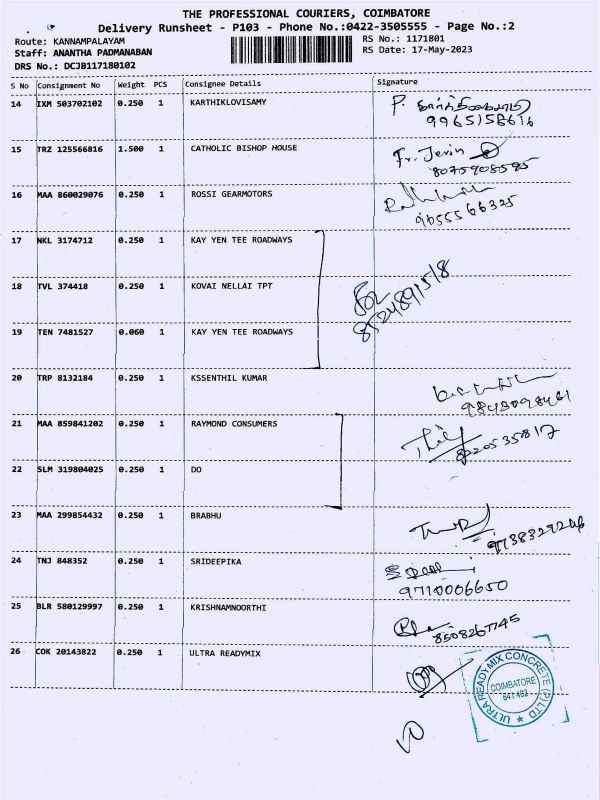 THE PROFESSIONAL COURIERS, COIMBATORE
Delivery Runsheet - P103 - Phone No.:0422-3505555 - Page No.:2
Route: KANNAMPALAYAM
RS No.: 1171801
Staff: ANANTHA PADMANABAN
RS Date: 17-May-2023
DRS No.: DCJB117180102
S No Consignment No Weight PCS Consignee Details Signature
14 IXM 503702102 0.250 1 KARTHIKLOVISAMY P.
9965158616
15 TRZ 125566816 1.500 1 CATHOLIC BISHOP HOUSE Fr. Jerin
8075908595
16 MAA 860029076 0.250 1 ROSSI GEARMOTORS
9055566325
17 NKL 3174712 0.250 1 KAY YEN TEE ROADWAYS
18 TVL 374418 0.250 1 KOVAI NELLAI TPT
8524891518
19 TEN 7481527 0.060 1 KAY YEN TEE ROADWAYS
20 TRP 8132184 0.250 1 KSSENTHIL KUMAR
21 MAA 859841202 0.250 1 RAYMOND CONSUMERS
8220535817
22 SLM 319804025 0.250 1 DO
23 MAA 299854432 0.250 1 BRABHU
24 TNJ 848352 0.250 1 SRIDEEPIKA
9710006650
25 BLR 580129997 0.250 1 KRISHNAMNOORTHI
8508267745
26 COK 20143822 0.250 1 ULTRA READYMIX
ULTRA READYMIX CONCRETE (P) LTD
COIMBATORE
641 402